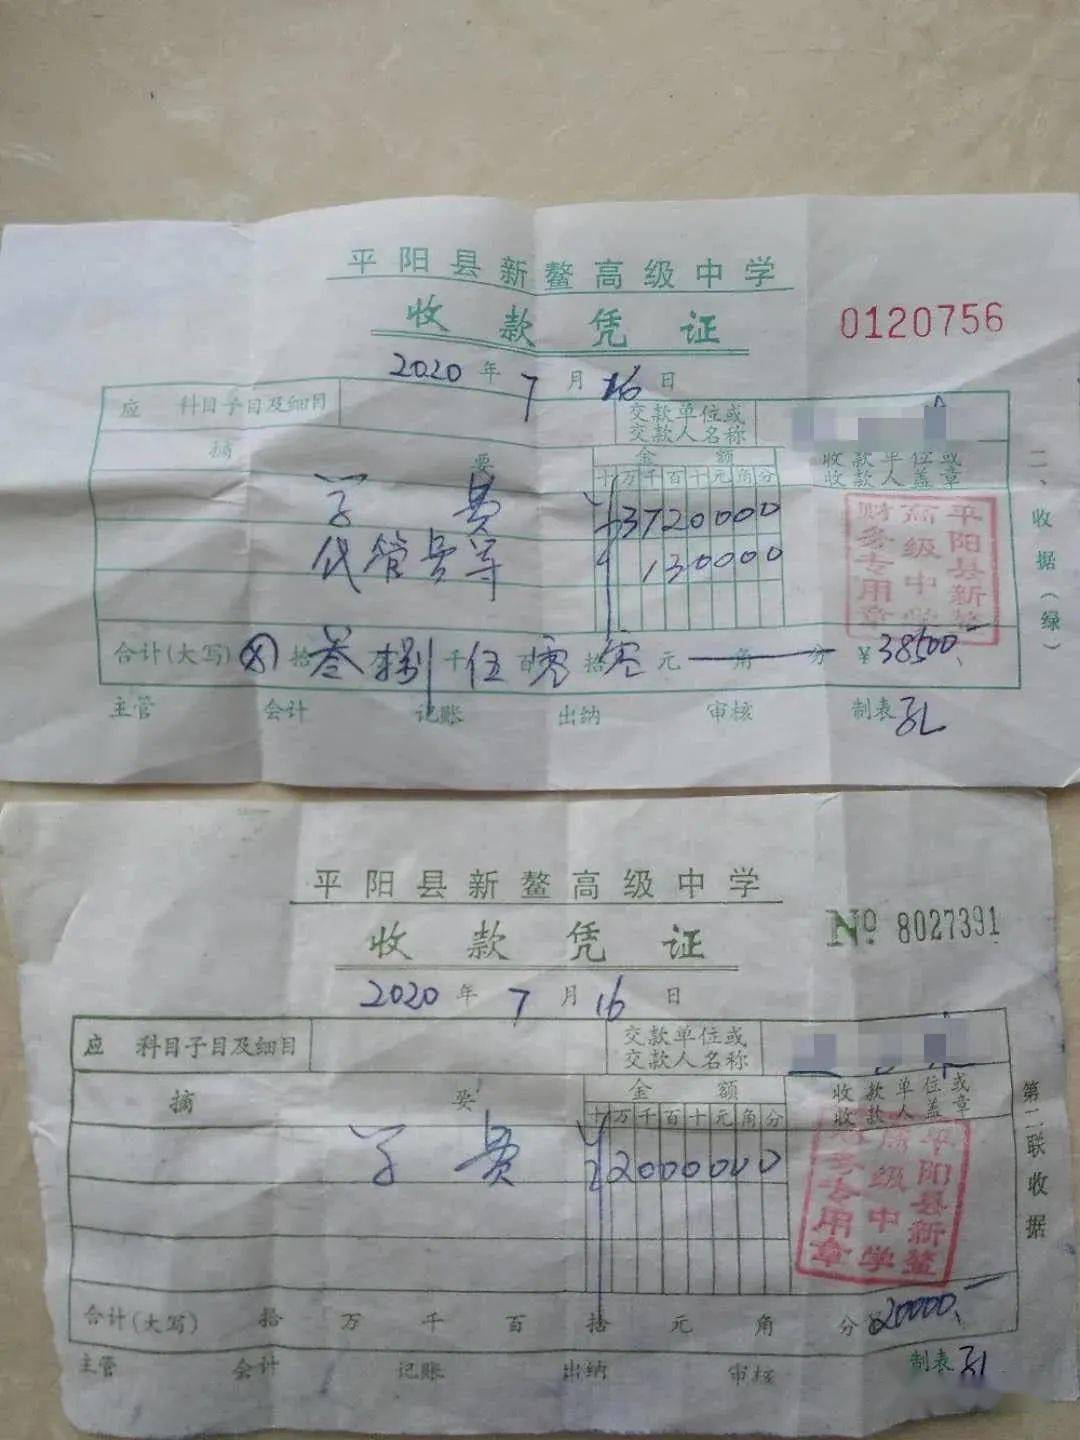 平阳县新鳌高级中学
收款凭证
0120756
2020年7月16日
应 科目子目及细目
交款单位或
交款人名称
摘 要
金 额
收款单位或
收款人盖章
十万千百十元角分
学费 3720000
代管费等 130000
平阳县新鳌
高级中学
财务专用章
二、收据(绿)
合计(大写) 拾叁万捌千伍百零拾零元 角 分 ¥38500
主管 会计 记账 出纳 审核 制表 孔
平阳县新鳌高级中学
收款凭证
№ 8027391
2020年7月16日
应 科目子目及细目
交款单位或
交款人名称
摘 要
金 额
收款单位或
收款人盖章
十万千百十元角分
学费 2000000
平阳县新鳌
高级中学
财务专用章
第二联收据
合计(大写) 拾 万 千 百 拾 元 角 分 ¥20000
主管 会计 记账 出纳 审核 制表 孔